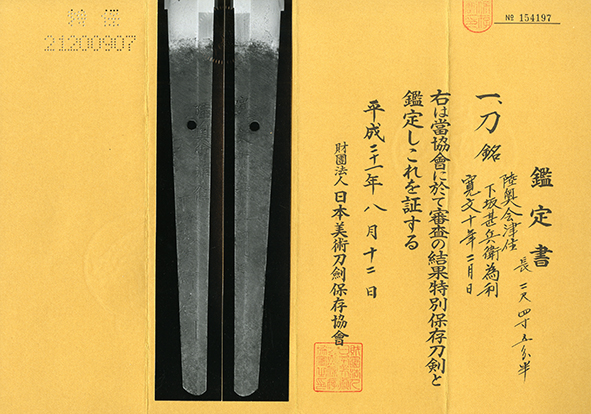 特保
21200907
№ 154197
鑑定書
一、刀 銘 陸奥会津住
下坂甚兵衛為利
寛文十年二月日
長 二尺四寸五分半
右は當協會に於て審査の結果特別保存刀剣と
鑑定しこれを証する
平成二十一年八月十二日
財團法人 日本美術刀劍保存協會